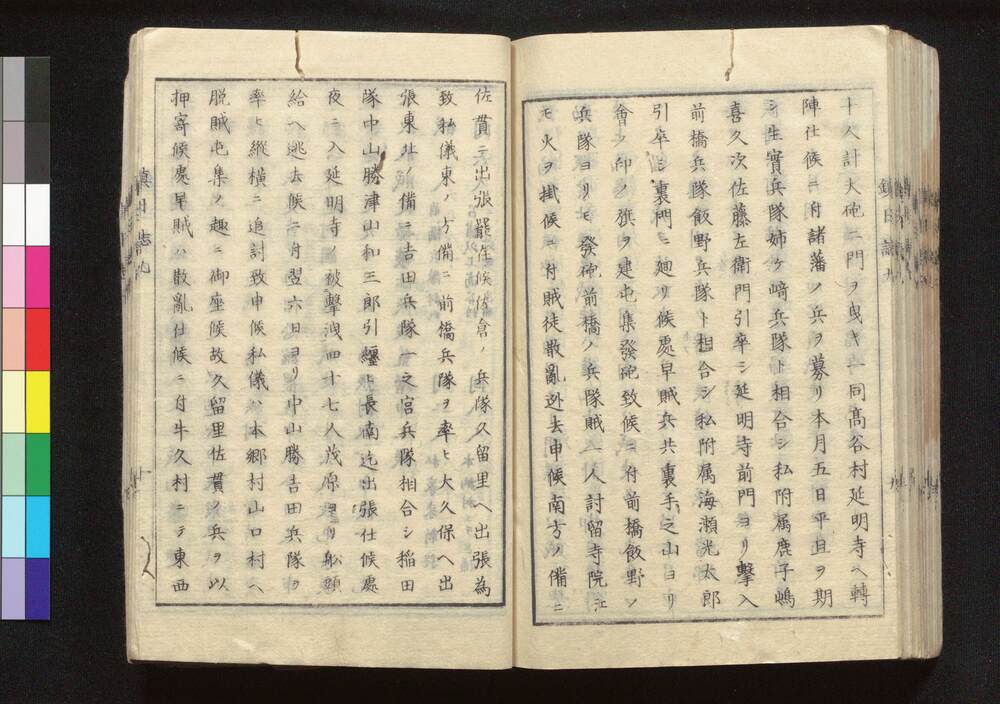 十人計大砲二門ヲ曳キ一同髙谷村延明寺ヘ轉
陣仕候ニ付諸藩ノ兵ヲ募リ本月五日平旦ヲ期
シ生實兵隊姉ケ﨑兵隊ト相合シ私附属鹿子嶋
喜久次佐藤左衛門引卒シ延明寺前門ヨリ擊入
前橋兵隊飯野兵隊ト相合シ私附属海瀬光太郎
引卒シ裏門ニ廻リ候處早賊兵共裏手之山ヨリ
會ノ印ノ旗ヲ建屯集發砲致候ニ付前橋飯野ノ
兵隊ヨリモ發砲前橋ノ兵隊賊一人討留寺院江
モ火ヲ掛候ニ付賊徒散亂迯去申候南方ノ備ニ
佐貫ニ出張罷在候佐倉ノ兵隊久留里ヘ出張為
致私儀東ノ方備ニ前橋兵隊ヲ率ヒ大久保ヘ出
張東北ノ備ニ吉田兵隊一之宮兵隊相合シ稲田
隊中山勝津山和三郎引纏ヒ長南迄出張仕候處
夜ニ入延明寺ノ被擊洩四十七人茂原ヨリ舩顔
給ヘ逃去候ニ付翌六日ヨリ中山勝吉田兵隊ヲ
率ヒ縱横ニ追討致申候私儀ハ本郷村山口村ヘ
脱賊屯集ノ趣ニ御座候故久留里佐貫ノ兵ヲ以
押寄候處早賊ハ散亂仕候ニ付牛久村ニテ東西